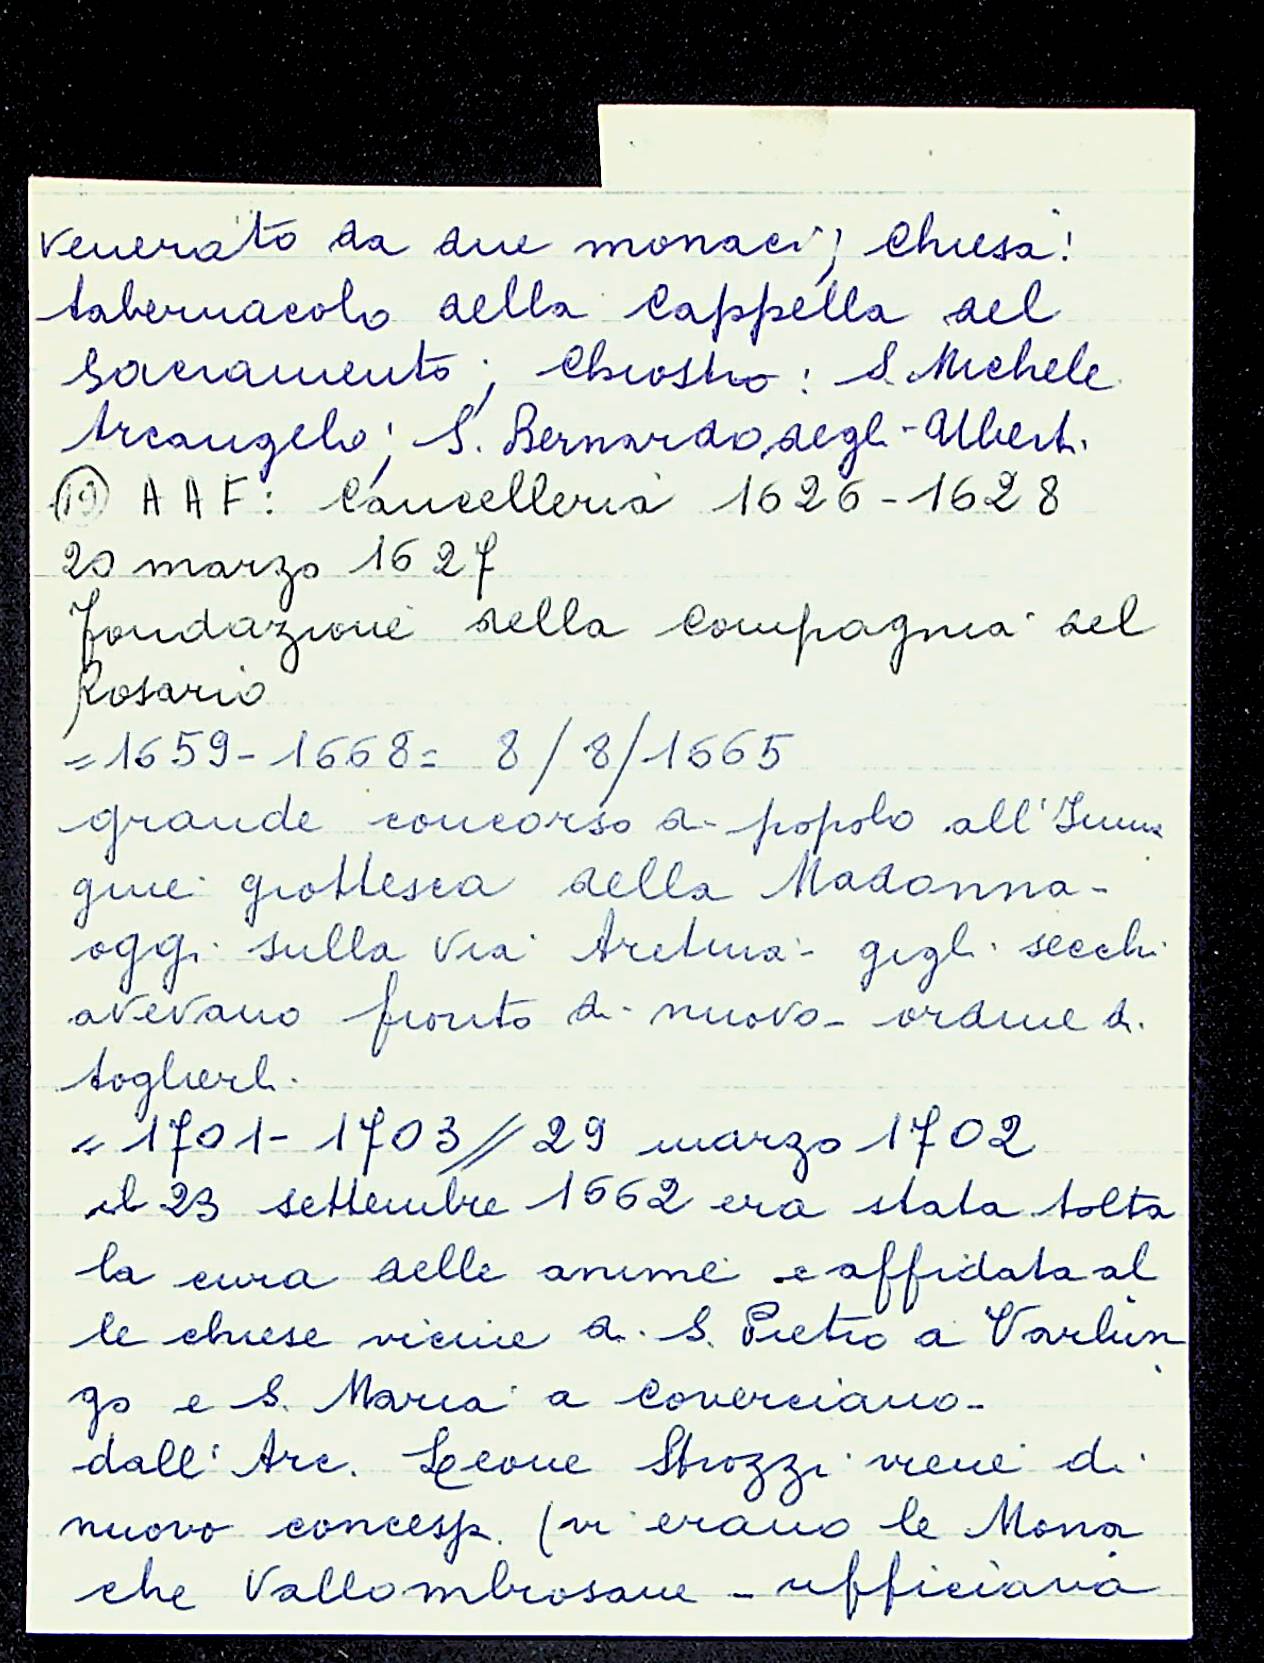 venerato da due monaci; Chiesa:
tabernacolo della Cappella del
Sacramento; Chiostro: S. Michele
Arcangelo; S. Bernardo degli Uberti.
(19) AAF: Cancelleria 1626-1628
20 marzo 1627
fondazione della Compagnia del
Rosario
=1659-1668= 8/8/1665
grande concorso di popolo all'Imma
gine grottesca della Madonna-
oggi sulla via Aretina- gigli secchi
avevano fiorito di nuovo- ordine di
toglierli.
= 1701-1703// 29 marzo 1702
il 23 settembre 1662 era stata tolta
la cura delle anime e affidata al
le chiese vicine di S. Pietro a Varlun
go e S. Maria a Coverciano-
dall'Arc. Leone Strozzi viene di
nuovo concess. (vi erano le Mona
che Vallombrosane - ufficiava